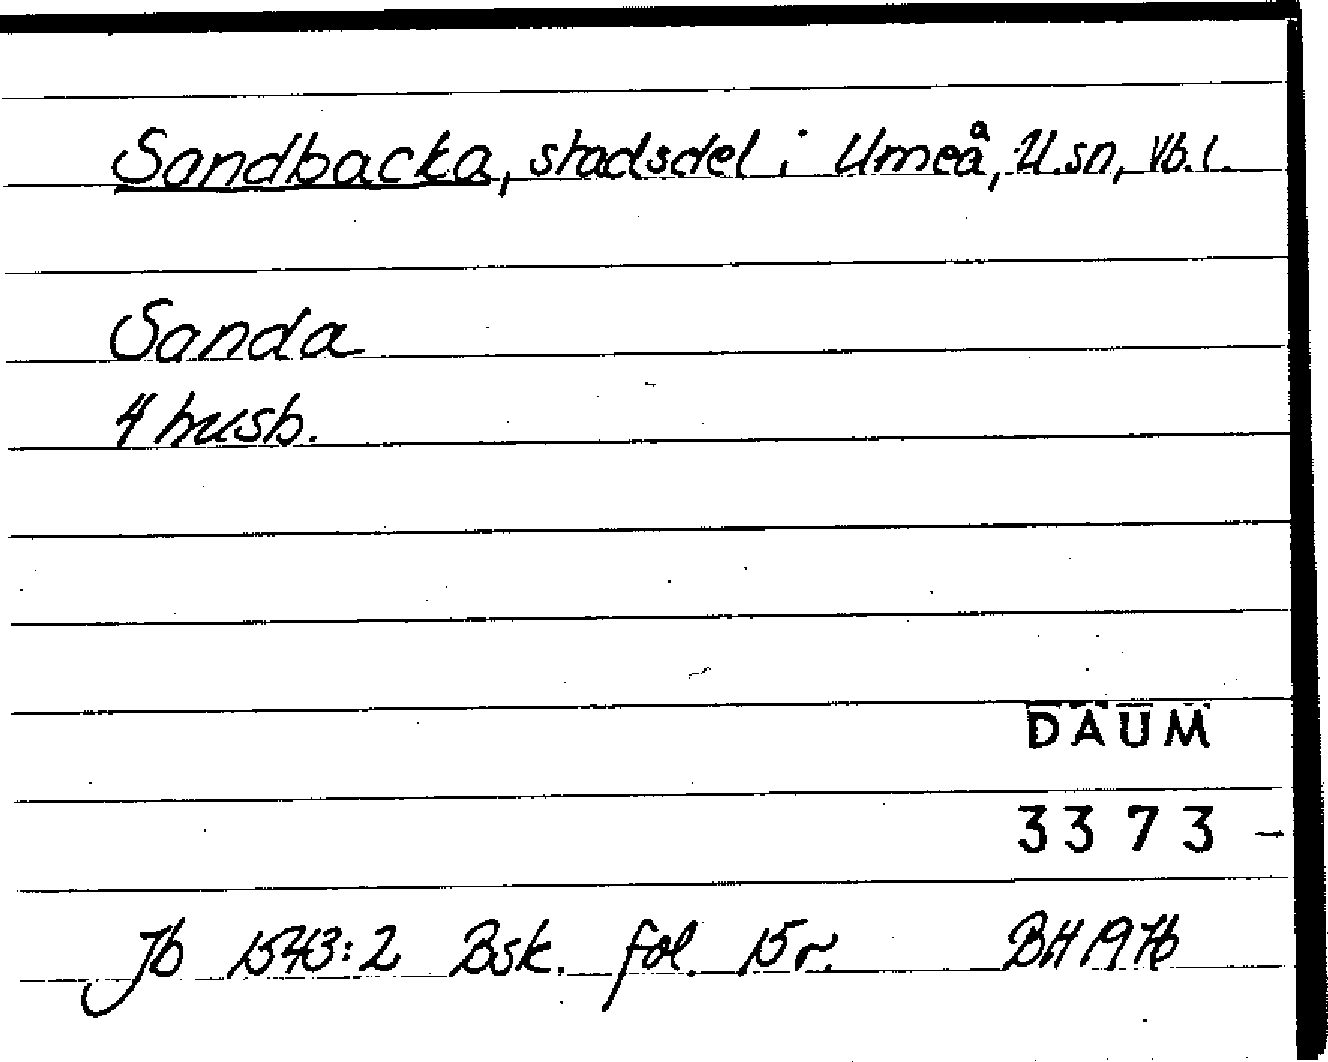 Sandbacka, stadsdel i Umeå, U.sn, Vb.l.
Sanda
4 husb.
DAUM
3373 -
Jb 1543:2 Bsk. fol. 15 r. BH 1976